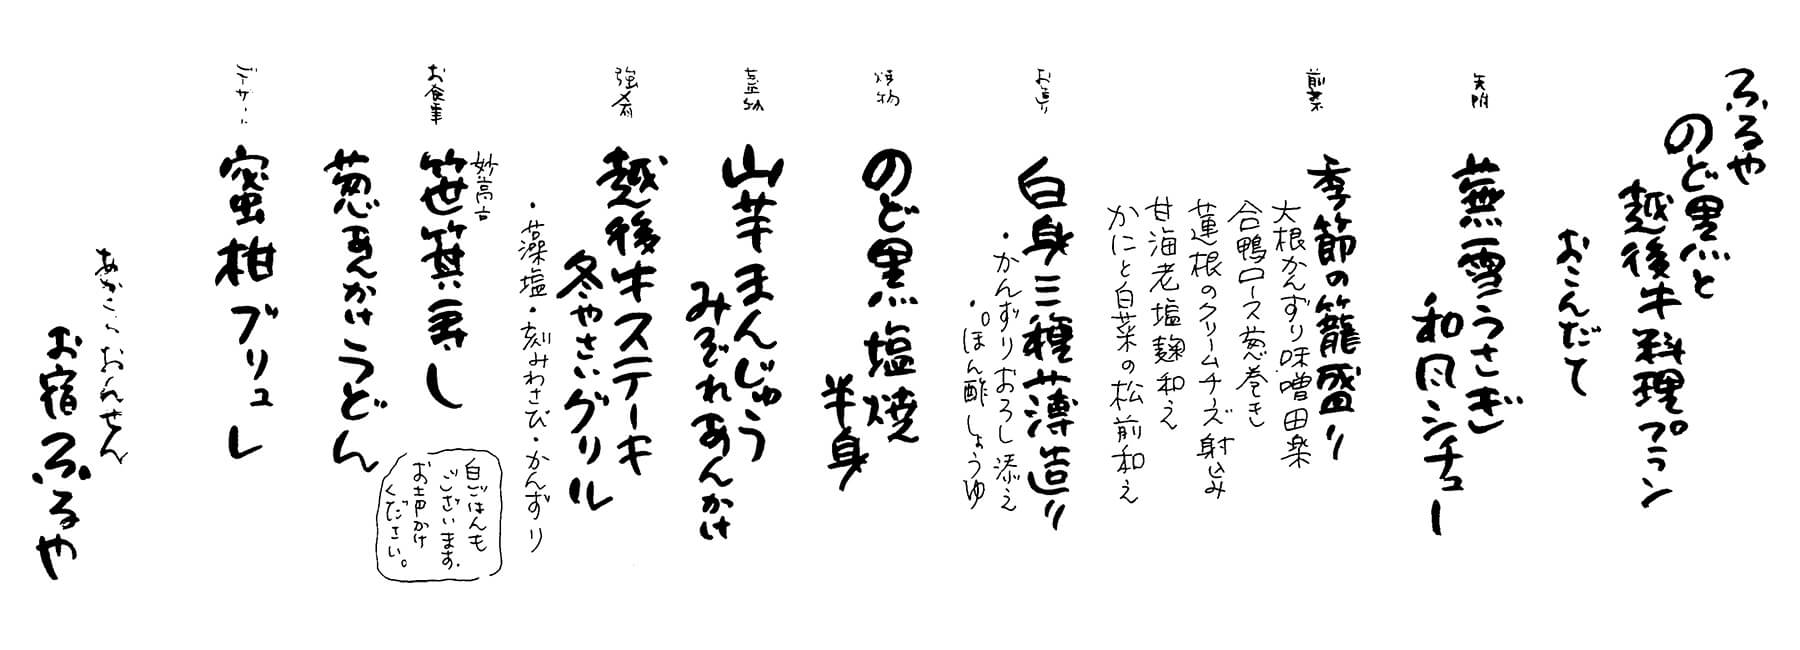 ふるや
のど黒と
越後牛料理プラン
おこんだて
先附
蕪雪うさぎ
和風シチュー
前菜
季節の籠盛り
大根かんずり味噌田楽
合鴨ロース葱巻き
蓮根のクリームチーズ射込み
甘海老塩麹和え
かにと白菜の松前和え
お造り
白身三種薄造り
・かんずりおろし添え
・ぽん酢しょうゆ
焼物
のど黒塩焼
半身
蒸物
山芋まんじゅう
みぞれあんかけ
強肴
越後牛ステーキ
冬やさいグリル
・藻塩・刻みわさび・かんずり
お食事
妙高古
笹箕寿し
葱あんかけうどん
白ごはんも
ございます。
お声かけ
ください。
デザート
蜜柑ブリュレ
あかくらおんせん
お宿ふるや